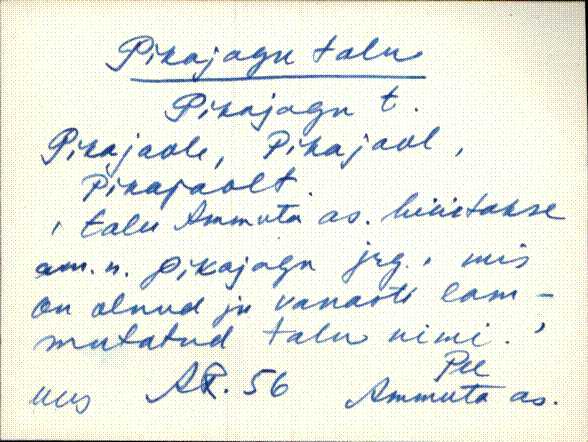 Pikajagu talu
Pikajagu t.
Pikajaole, Pikajaol,
Pikajaolt
, talu Ammuta as. hüütakse
am. n. Pikajagu jrg., mis
on olnud ju vanasti lam-
mutatud talu nimi.'
uus AR. 56 Pee
Ammuta as.